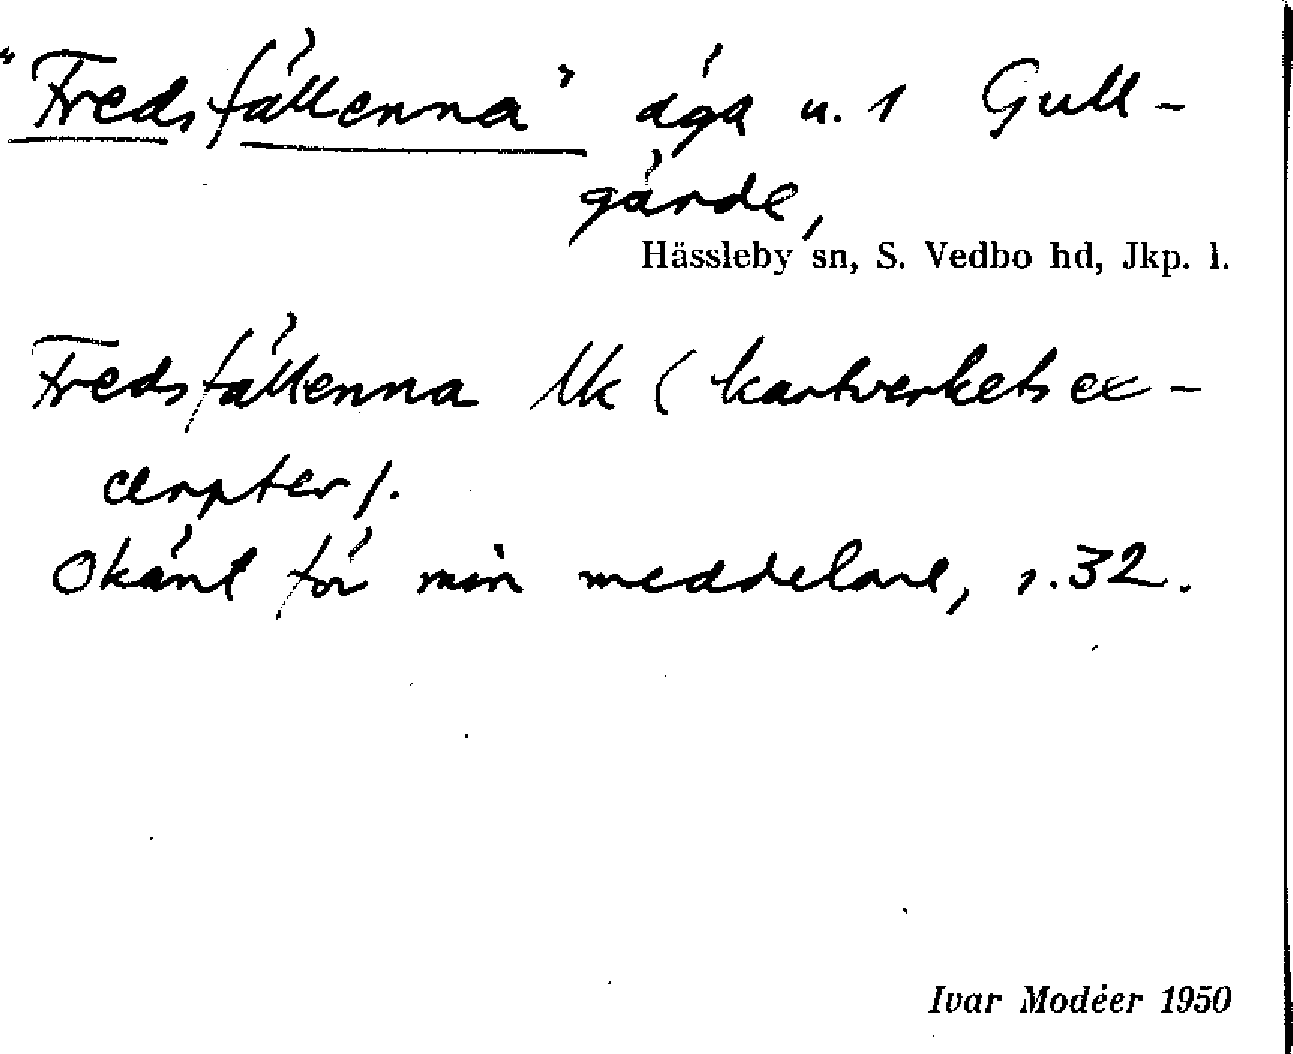 "Fredsfällenna" äga u. 1 Gull-
gärde,
Hässleby sn, S. Vedbo hd, Jkp. l.
Fredsfällenna lk (kartverkets ex-
cerpter).
Okänt för min meddelare, s. 32.
Ivar Modéer 1950